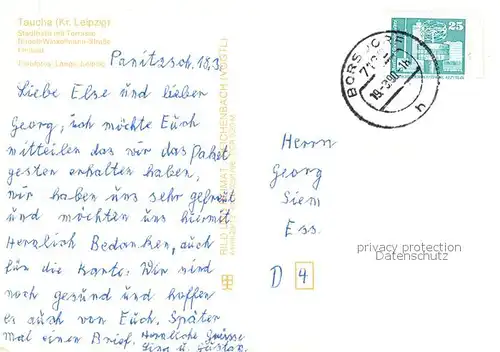 Taucha (Kr. Leipzig)
Stadtcafé mit Terrasse
Panitzsch. 18.3.
Liebe Else und lieber
Georg, ich möchte Euch
mitteilen das wir das Paket
gesten erhalten haben,
wir haben uns sehr gefreut
und möchten uns hiermit
Herzlich Bedanken, auch
für die Karte. Wir sind
noch gesund und hoffen
es auch von Euch. Später
mal einen Brief. Herzliche Grüsse
Lina u. Gustav.
BILD UND HEIMAT REICHENBACH (VOGTL)
BORSDORF
19.-3.90.-14
h
25
Herrn
Georg
Siem
Ess.
D 4
privacy protection
Datenschutz